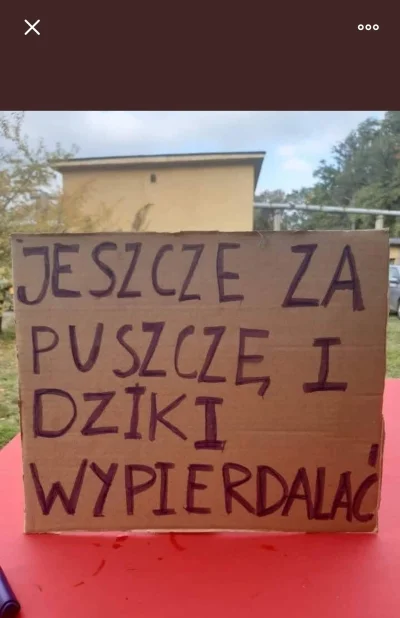 JESZCZE ZA
PUSZCZĘ I
DZIKI
WYPIERDALAĆ